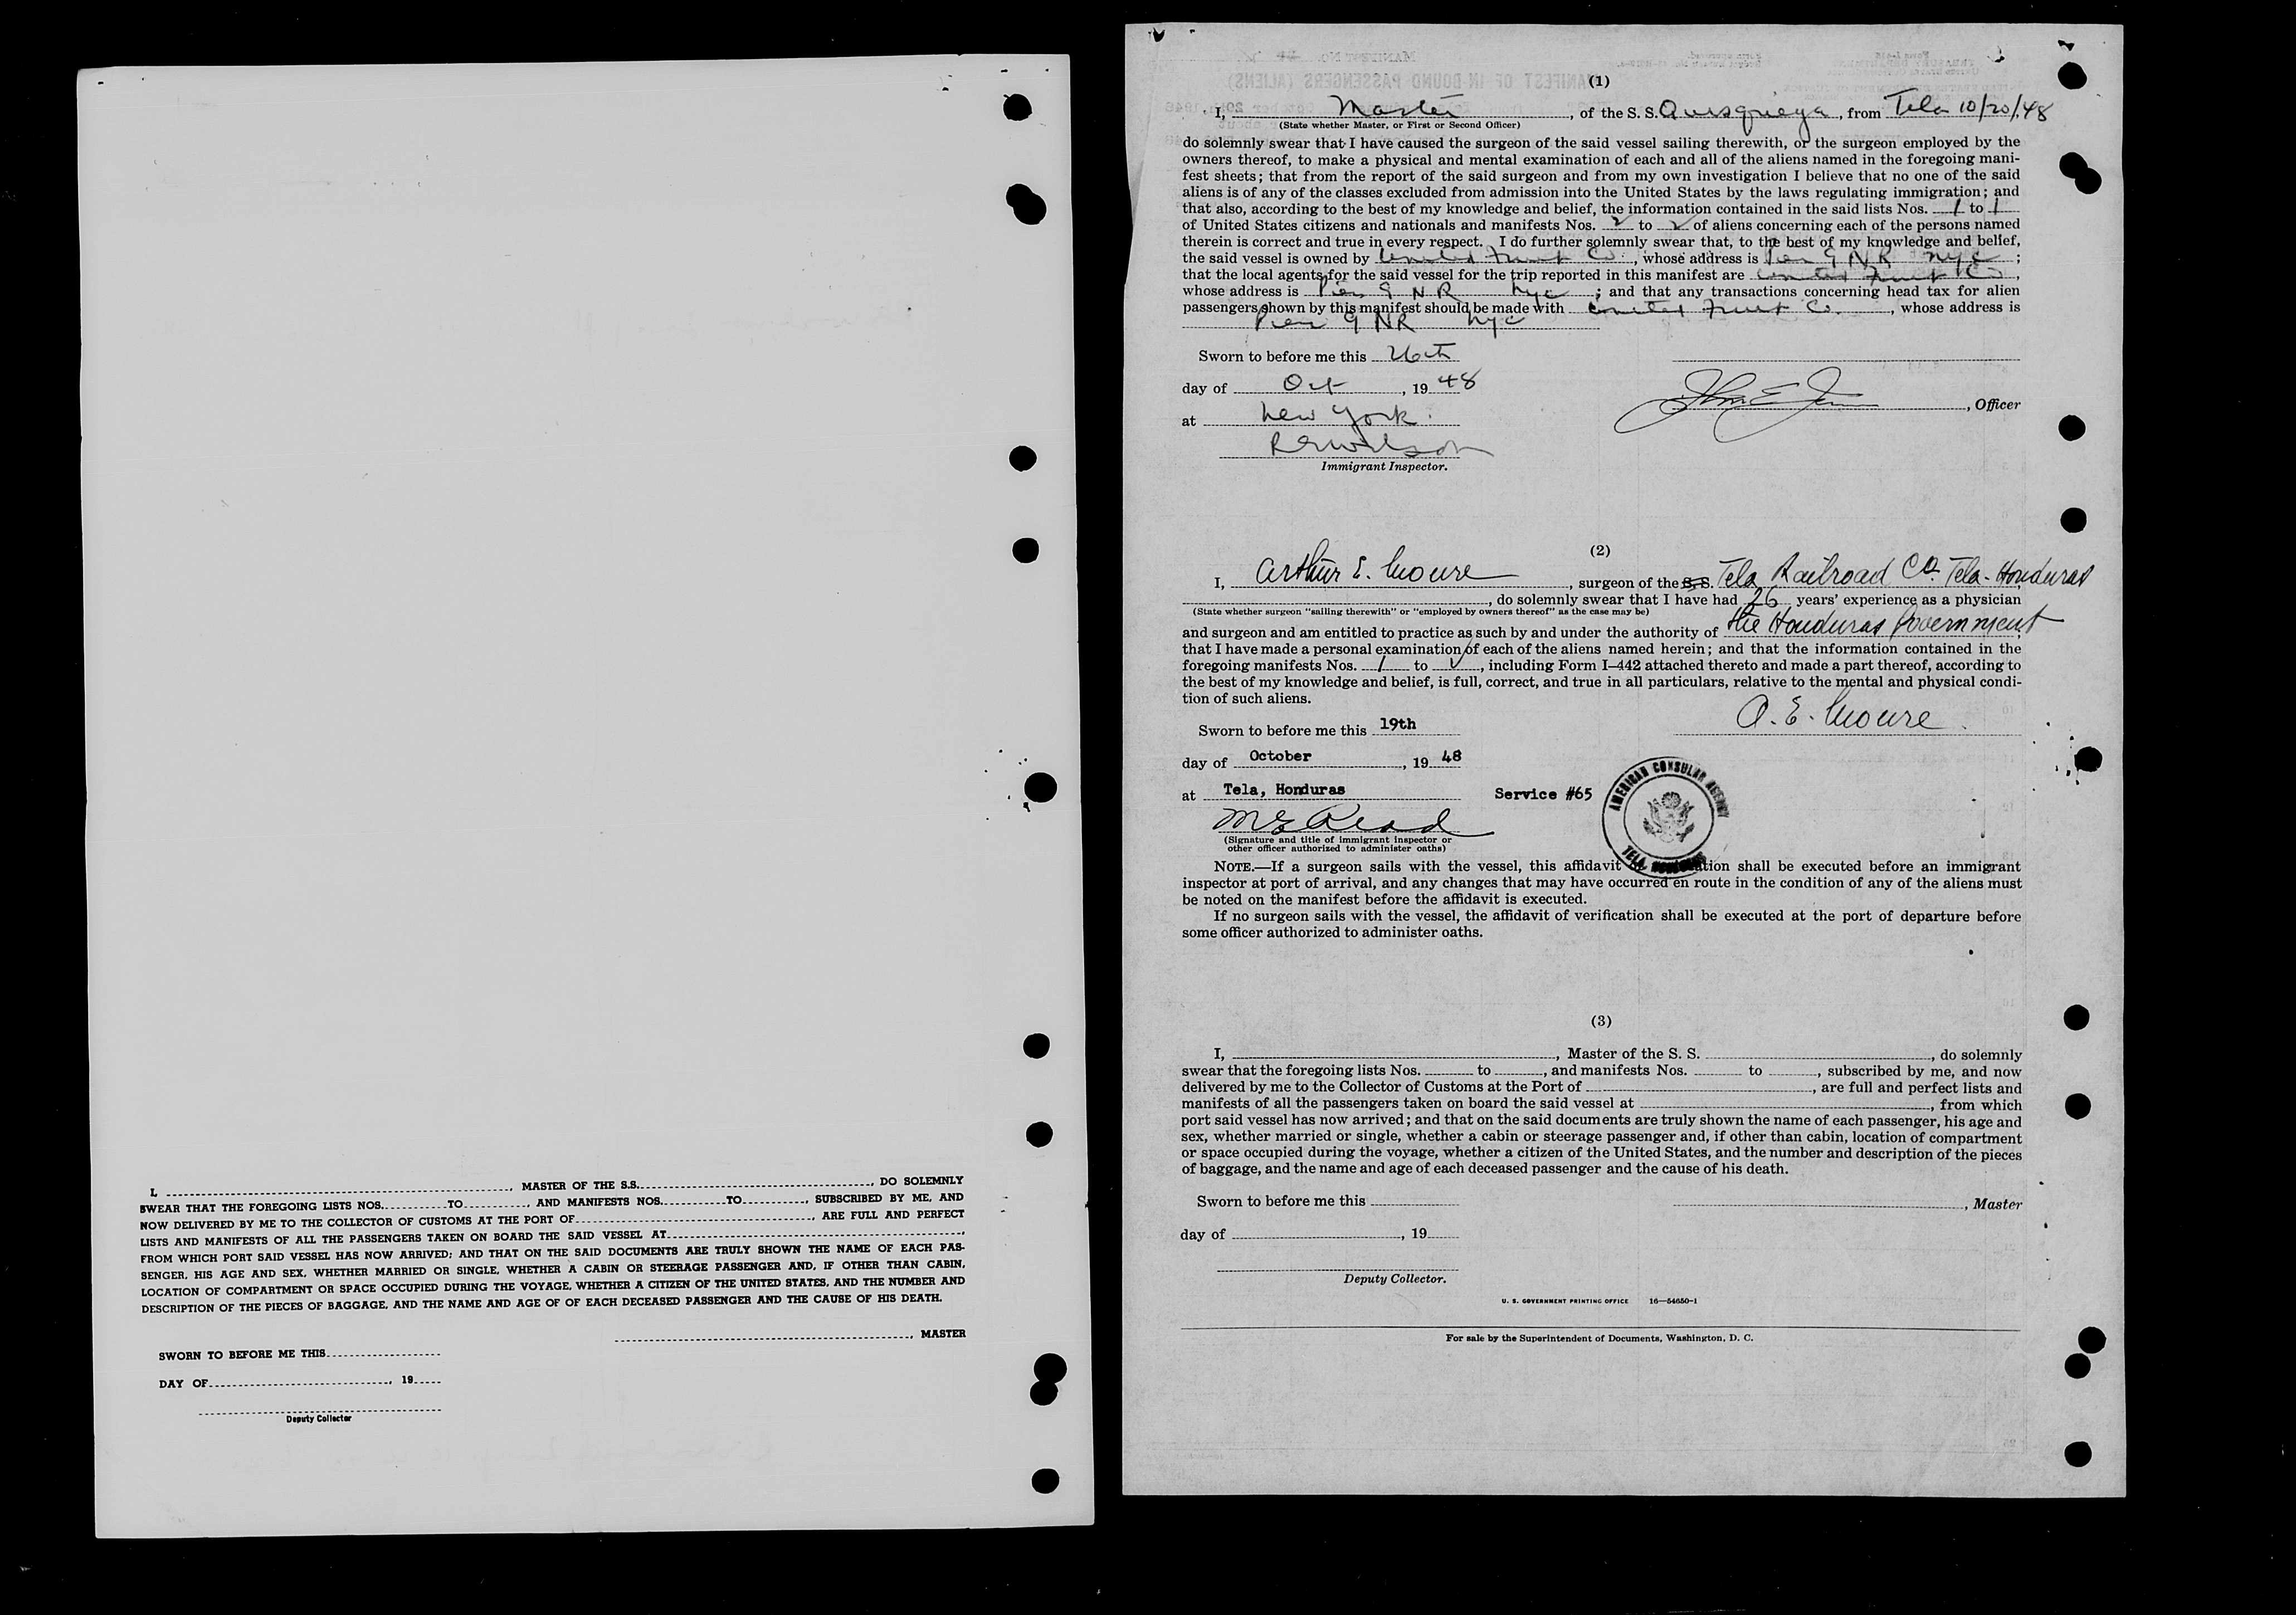 I, ________, MASTER OF THE S.S. ________, DO SOLEMNLY
SWEAR THAT THE FOREGOING LISTS NOS. ____ TO ____, AND MANIFESTS NOS. ____ TO ____, SUBSCRIBED BY ME, AND
NOW DELIVERED BY ME TO THE COLLECTOR OF CUSTOMS AT THE PORT OF ________, ARE FULL AND PERFECT
LISTS AND MANIFESTS OF ALL THE PASSENGERS TAKEN ON BOARD THE SAID VESSEL AT ________,
FROM WHICH PORT SAID VESSEL HAS NOW ARRIVED; AND THAT ON THE SAID DOCUMENTS ARE TRULY SHOWN THE NAME OF EACH PAS-
SENGER, HIS AGE AND SEX, WHETHER MARRIED OR SINGLE, WHETHER A CABIN OR STEERAGE PASSENGER AND, IF OTHER THAN CABIN,
LOCATION OF COMPARTMENT OR SPACE OCCUPIED DURING THE VOYAGE, WHETHER A CITIZEN OF THE UNITED STATES, AND THE NUMBER AND
DESCRIPTION OF THE PIECES OF BAGGAGE, AND THE NAME AND AGE OF OF EACH DECEASED PASSENGER AND THE CAUSE OF HIS DEATH.
________, MASTER
SWORN TO BEFORE ME THIS ________
DAY OF ________, 19____
Deputy Collector
(1)
I, Master, of the S. S. Quisqueya, from Tela 10/20/48
(State whether Master, or First or Second Officer)
do solemnly swear that I have caused the surgeon of the said vessel sailing therewith, or the surgeon employed by the
owners thereof, to make a physical and mental examination of each and all of the aliens named in the foregoing mani-
fest sheets; that from the report of the said surgeon and from my own investigation I believe that no one of the said
aliens is of any of the classes excluded from admission into the United States by the laws regulating immigration; and
that also, according to the best of my knowledge and belief, the information contained in the said lists Nos. 1 to 1
of United States citizens and nationals and manifests Nos. 2 to 2 of aliens concerning each of the persons named
therein is correct and true in every respect. I do further solemnly swear that, to the best of my knowledge and belief,
the said vessel is owned by United Fruit Co., whose address is Pier 9 NR NYC;
that the local agents for the said vessel for the trip reported in this manifest are United Fruit Co,
whose address is Pier 9 NR NYC; and that any transactions concerning head tax for alien
passengers shown by this manifest should be made with United Fruit Co., whose address is
Pier 9 NR NYC
Sworn to before me this 26th
day of Oct, 1948
at New York.
, Officer
Immigrant Inspector.
(2)
I, Arthur E. Moure, surgeon of the S.S. Tela Railroad Co. Tela-Honduras
________, do solemnly swear that I have had 26 years' experience as a physician
(State whether surgeon "sailing therewith" or "employed by owners thereof" as the case may be)
and surgeon and am entitled to practice as such by and under the authority of the Honduras Government,
that I have made a personal examination of each of the aliens named herein; and that the information contained in the
foregoing manifests Nos. 1 to ____, including Form I-442 attached thereto and made a part thereof, according to
the best of my knowledge and belief, is full, correct, and true in all particulars, relative to the mental and physical condi-
tion of such aliens.
A. E. Moure
Sworn to before me this 19th
day of October, 1948
at Tela, Honduras Service #65
AMERICAN CONSULAR AGENCY
TELA
(Signature and title of immigrant inspector or
other officer authorized to administer oaths)
NOTE.—If a surgeon sails with the vessel, this affidavit shall be executed before an immigrant
inspector at port of arrival, and any changes that may have occurred en route in the condition of any of the aliens must
be noted on the manifest before the affidavit is executed.
If no surgeon sails with the vessel, the affidavit of verification shall be executed at the port of departure before
some officer authorized to administer oaths.
(3)
I, ________, Master of the S. S. ________, do solemnly
swear that the foregoing lists Nos. ____ to ____, and manifests Nos. ____ to ____, subscribed by me, and now
delivered by me to the Collector of Customs at the Port of ________, are full and perfect lists and
manifests of all the passengers taken on board the said vessel at ________, from which
port said vessel has now arrived; and that on the said documents are truly shown the name of each passenger, his age and
sex, whether married or single, whether a cabin or steerage passenger and, if other than cabin, location of compartment
or space occupied during the voyage, whether a citizen of the United States, and the number and description of the pieces
of baggage, and the name and age of each deceased passenger and the cause of his death.
Sworn to before me this ________
________, Master
day of ________, 19____
Deputy Collector.
U. S. GOVERNMENT PRINTING OFFICE 16—54650-1
For sale by the Superintendent of Documents, Washington, D. C.